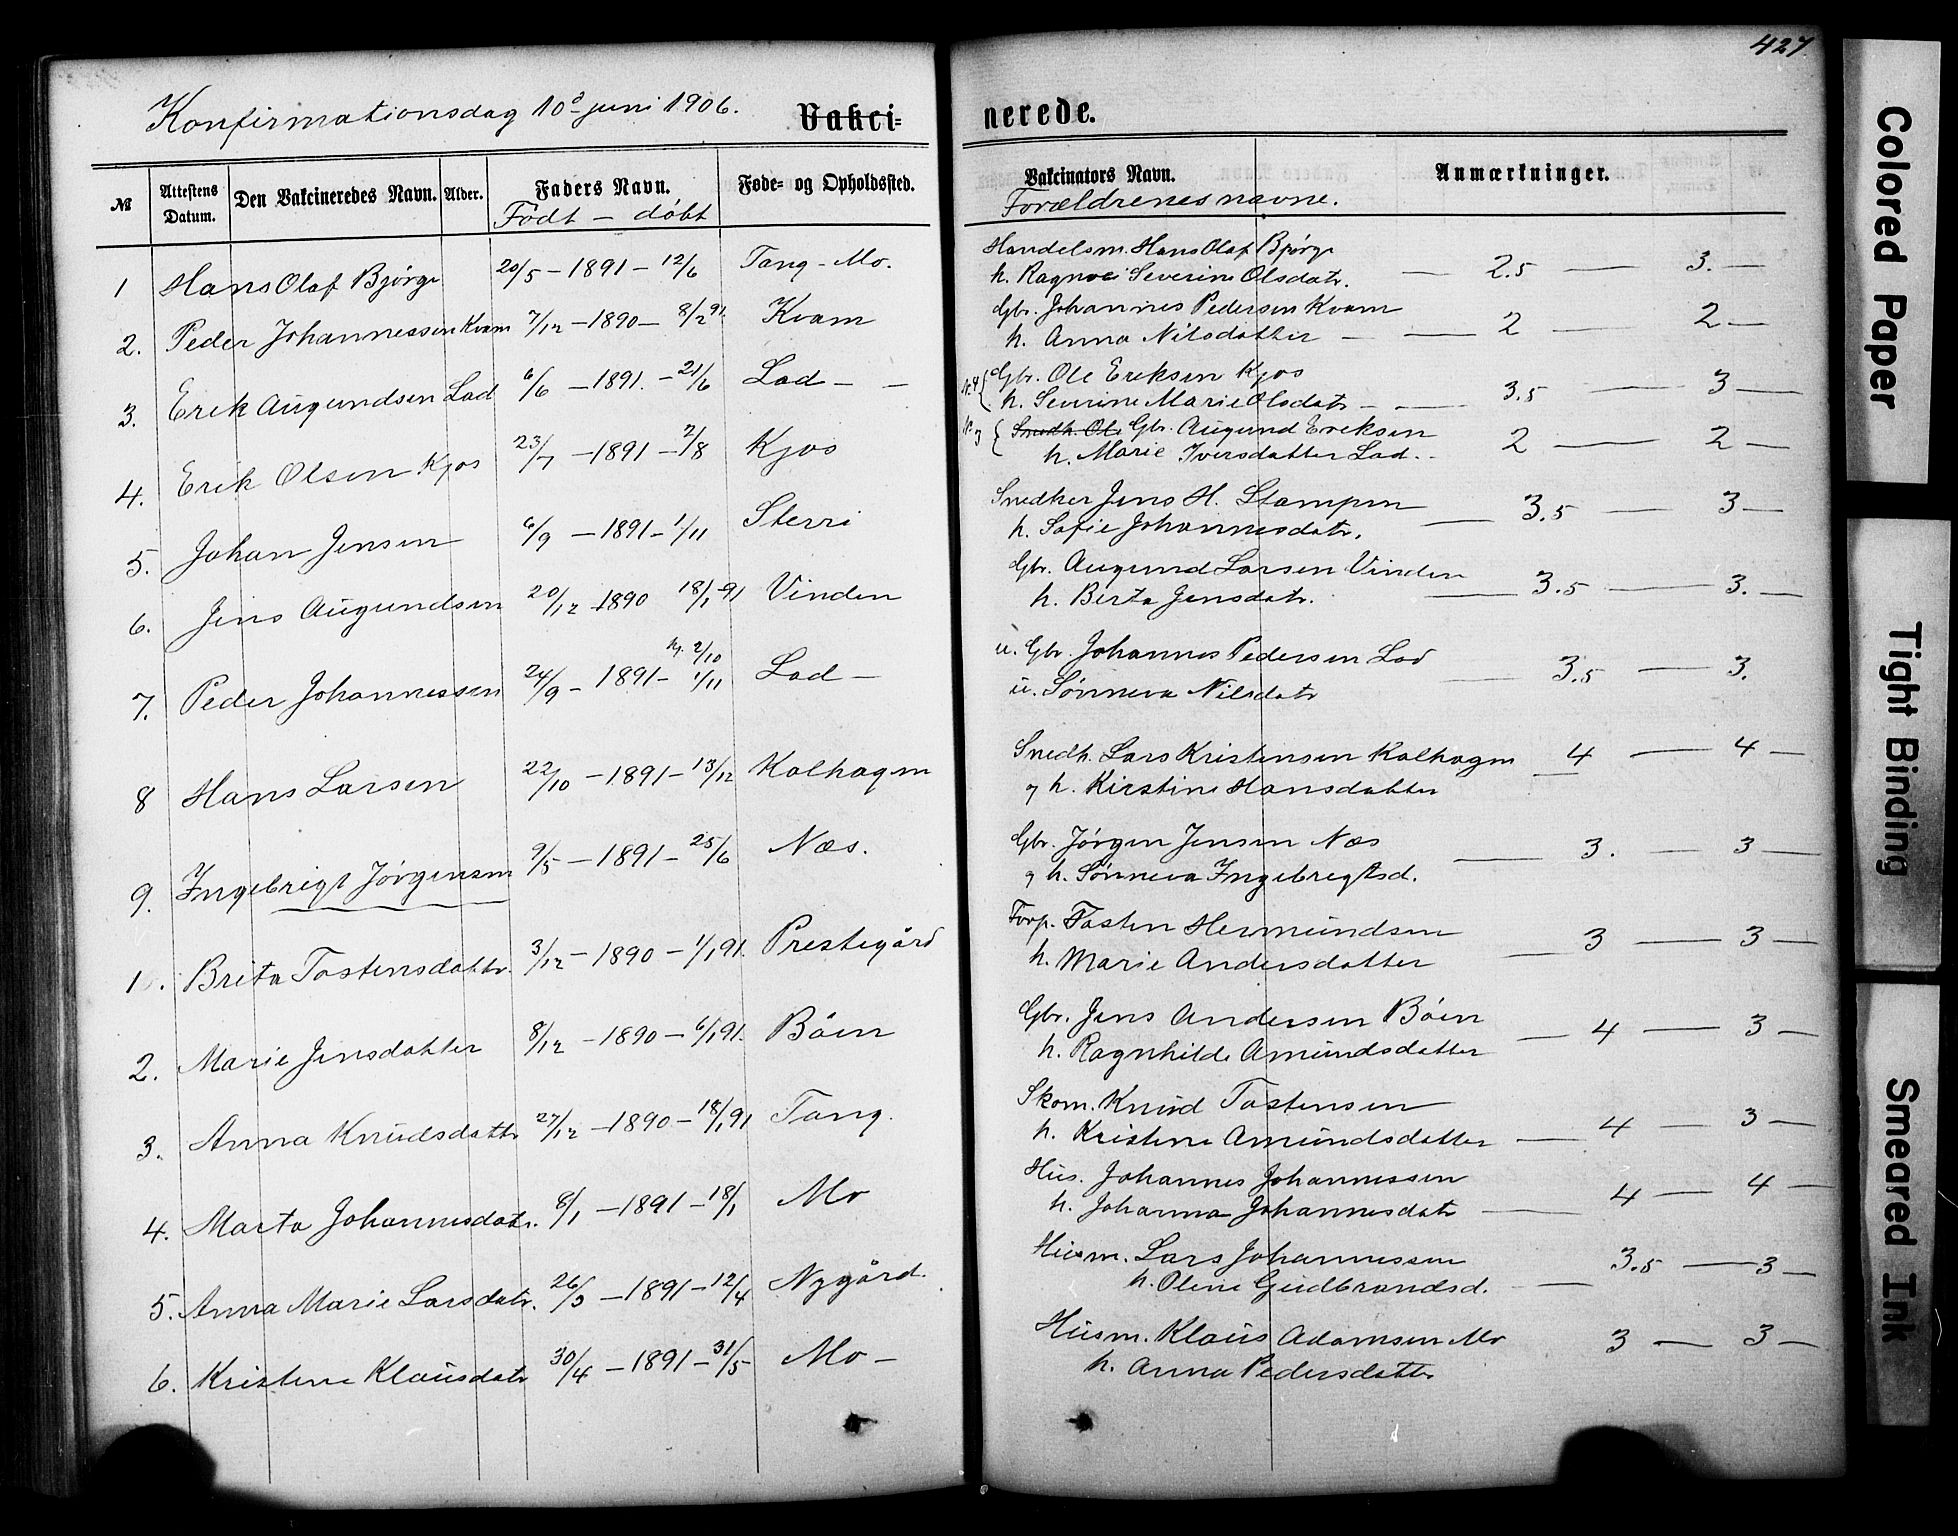 427
Konfirmationsdag 10de juni 1906.
Vakcinerede.
№ Attestens Datum. Den Vakcineredes Navn. Alder. Faders Navn. Føde- og Opholdssted. Vakcinators Navn. Anmærkninger.
Født — døbt Forældrenes navne.
1 Hans Olaf Bjørge 20/5 — 1891 — 12/6 Tang - Mo. Handelsm. Hans Olaf Bjørge
h. Ragna Severine Olsdatr. — 2.5 — 3. —
2. Peder Johannessen Kvam 7/12 — 1890 — 8/2 91. Kvam Gbr. Johannes Pedersen Kvam
h. Anna Nilsdatter — 2 — 2 —
3. Erik Augundsen Lad 6/6 — 1891. — 21/6 Lad — — Nr. 4 { Gbr. Ole Eriksen Kjos
h. Severine Marie Olsdatr — 3.5 — 3 —
4. Erik Olsen Kjos 23/7 — 1891 — 2/8 Kjos Nr. 3 { Snedk. Ole Gbr. Augund Eriksen
h. Marie Iversdatter Lad. — 2 — 2 —
5. Johan Jensen 6/9 — 1891 — 1/11 Sterri Snedker Jens H. Stampen
h. Sofie Johannesdatr. — 3.5 — 3 —
6. Jens Augundsen 20/12 — 1890 18/1 91 Vinden Gbr. Augund Larsen Vinden
h. Berta Jensdatr. — 3.5 — 3. —
7. Peder Johannessen 24/9 — 1891 — hj. 2/10 1/11 Lad — u. Gbr. Johannes Pedersen Lad
u. Sønneva Nilsdatr — 3.5 — 3.
8 Hans Larsen 22/10 — 1891 — 13/12 Kolhagen Snedk. Lars Kristensen Kolhagen
og h. Kirstine Hansdatter — 4 — 4 —
9. Ingebrigt Jørgensen 9/5 — 1891 — 25/6 Næs. Gbr. Jørgen Jensen Næs
og h. Sønneva Ingebrigtsd. — 3. — 3 —
1. Brita Tostensdattr. 3/12 — 1890 — 1/1 91. Prestegård Forp. Tosten Hermundsen
h. Marie Andersdatter — 3 — 3 —
2. Marie Jensdatter 8/12 — 1890 — 6/1 91. Bøen Gbr. Jens Andersen Bøen
h. Ragnhilde Amundsdatter — 4 — 3 —
3. Anna Knudsdattr 27/12 — 1890 — 18/1 91 Tang. Skom. Knud Tostensen
h. Kristine Amundsdatter — 4 — 3 —
4. Marta Johannesdatr. 8/1 — 1891 — 18/1 Mo Hus. Johannes Johannessen
h. Johanna Johannesdatr — 4 — 4 —
5. Anna Marie Larsdatr. 26/3 — 1891 — 12/4 Nygård. Husm. Lars Johannessen
h. Oline Gudbrandsd. — 3.5 — 3 —
6. Kristene Klausdatr 30/4 — 1891 — 31/5 Mo — Husm. Klaus Adamsen Mo
h. Anna Pedersdatter 3 — 3 —
Colored Paper
Tight Binding
Smeared Ink